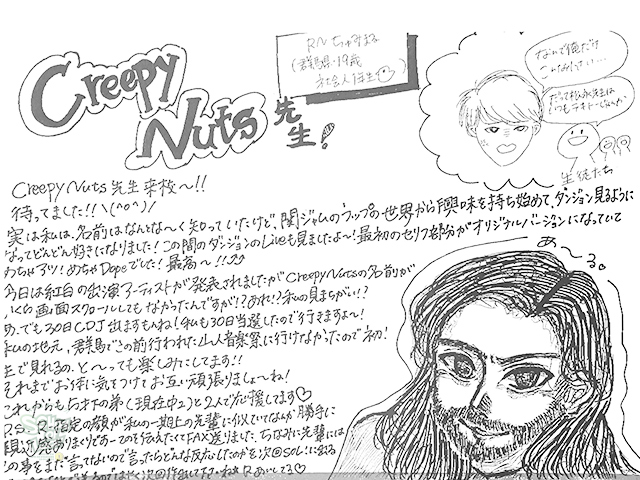 Creepy Nuts 先生!
RN ちゃすまる
(群馬県・19歳
社会人1年生)
なんで俺だけ
こんなんしたい…
だって松永先生は
いつもテキトーじゃんか
生徒たち
Creepy Nuts 先生 来校〜!!
待ってました!!\(^o^)/
実は私は、名前はなんとな〜く知っていたけど、関ジャムのラップの世界から興味を持ち始めて、ダンジョン見るように
なってどんどん好きになりました!この間のダンジョンのLiveも見ましたよ〜!最初のセリフ部分がオリジナルバージョンになっていて
めちゃアツ!めちゃDopeでした!最高〜!!
今日は紅白の出演アーティストが発表されましたがCreepy Nutsの名前が
いくら画面スクロールしてもなかったんですが!?あれ!?私の見まちがい!?
でも30日CDJ出ますもんね!私も30日当選したので行きますよ〜!
私の地元、群馬でこの前行われた山人音楽祭に行けなかったので初!
生で見れるの、と〜っても楽しみにしてます!!
それまでお体に気をつけてお互い頑張りましょ〜ね!
これからも5才下の弟(現在中2)と2人で応援してます♡
R-指定の顔が私の一期上の先輩に似ていてなんか勝手に
感ありまくりであーってを伝えたくてFAX送りました。ちなみに先輩には
この事をまだ言ってないので言ったらどんな反応したのかを次回SOL!に送る
あ〜る。